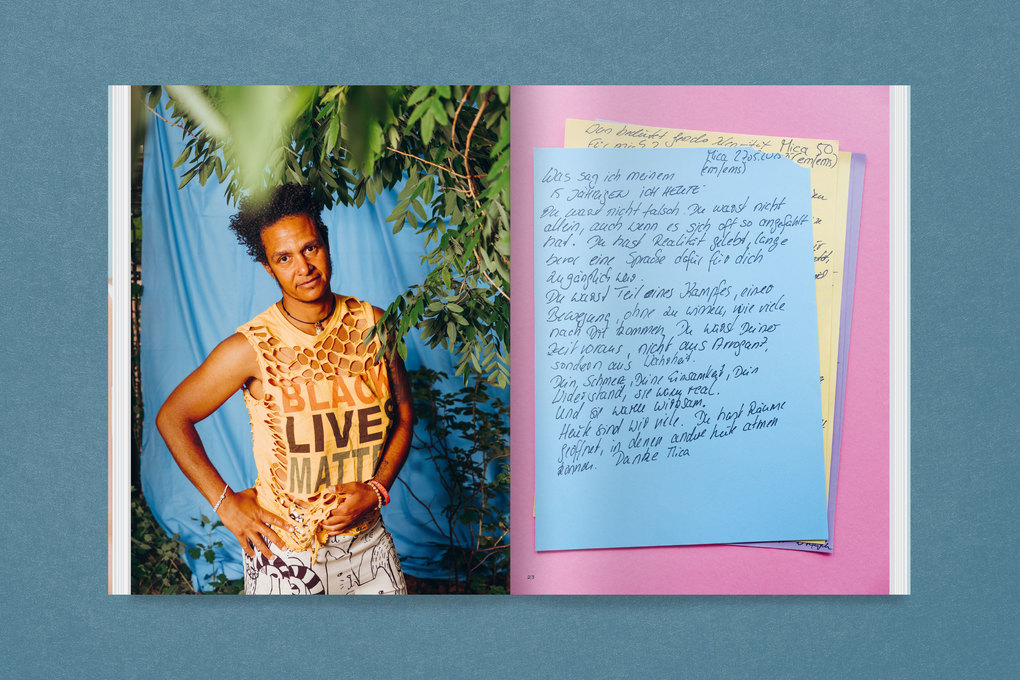 BLACK
LIVES
MATTE
Das bedeutet Mica 50
für mich? (em/ems)
Mica 27.05.
(em/ems)
Was sag ich meinem
15 Jährigen ICH HEUTE:
Du warst nicht falsch. Du warst nicht
allein, auch wenn es sich oft so angefühlt
hat. Du hast Realität gelebt, lange
bevor eine Sprache dafür für dich
zugänglich war.
Du warst Teil eines Kampfes, einer
Bewegung, ohne zu wissen, wie viele
nach Dir kommen. Du warst Deiner
Zeit voraus, nicht aus Arroganz,
sondern aus Wahrheit.
Dein Schmerz, Deine Einsamkeit, Dein
Widerstand, sie waren real.
Und sie waren wirksam.
Heute sind wir viele. Du hast Räume
geöffnet, in denen andere heute atmen
können. Danke Mica
23